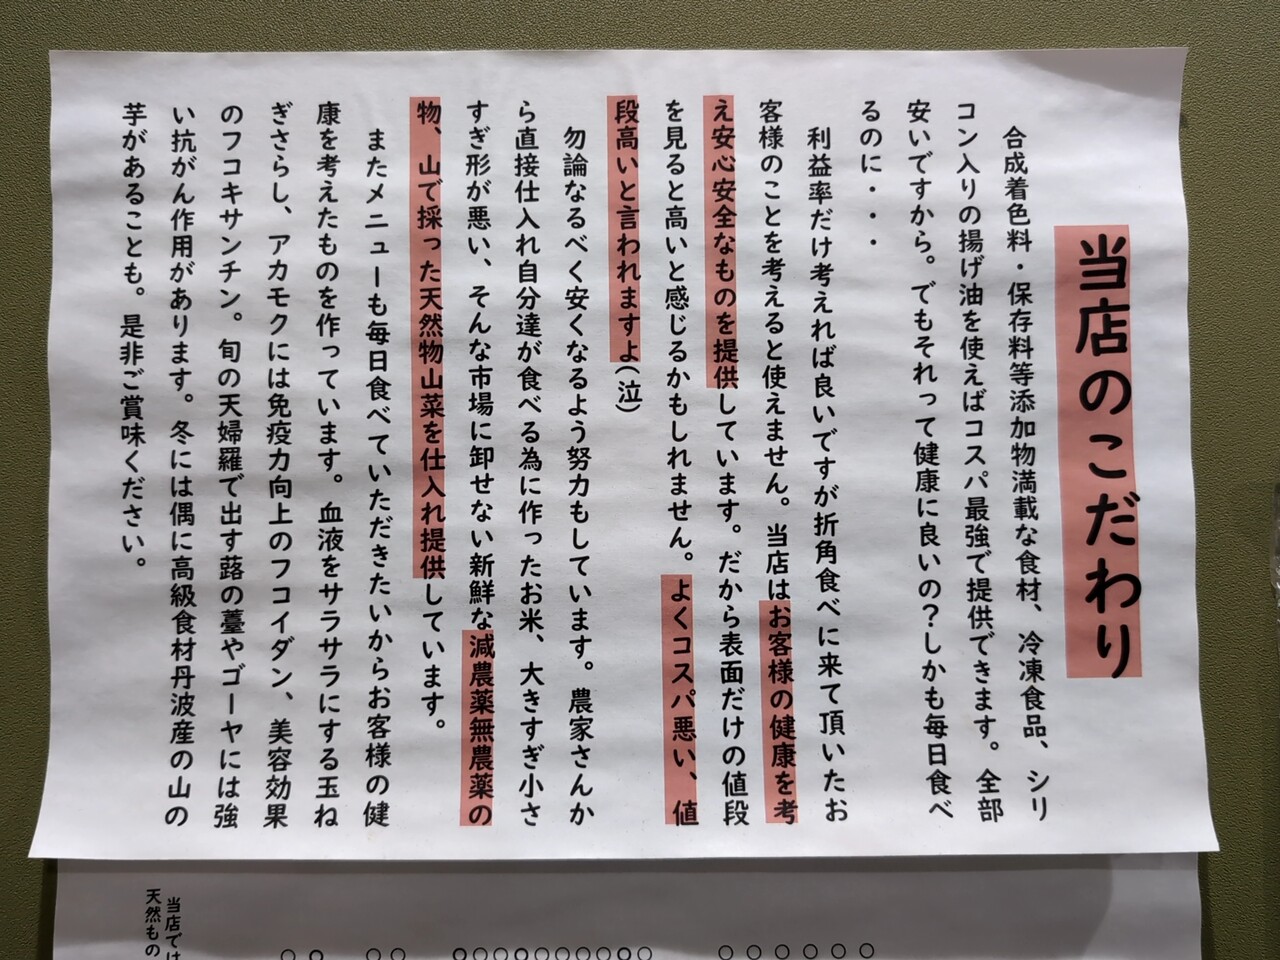 当店のこだわり
合成着色料・保存料等添加物満載な食材、冷凍食品、シリ
コン入りの揚げ油を使えばコスパ最強で提供できます。全部
安いですから。でもそれって健康に良いの？しかも毎日食べ
るのに・・・
利益率だけ考えれば良いですが折角食べに来て頂いたお
客様のことを考えると使えません。当店はお客様の健康を考
え安心安全なものを提供しています。だから表面だけの値段
を見ると高いと感じるかもしれません。よくコスパ悪い、値
段高いと言われますよ(泣)
勿論なるべく安くなるよう努力もしています。農家さんか
ら直接仕入れ自分達が食べる為に作ったお米、大きすぎ小さ
すぎ形が悪い、そんな市場に卸せない新鮮な減農薬無農薬の
物、山で採った天然物山菜を仕入れ提供しています。
またメニューも毎日食べていただきたいからお客様の健
康を考えたものを作っています。血液をサラサラにする玉ね
ぎさらし、アカモクには免疫力向上のフコイダン、美容効果
のフコキサンチン。旬の天婦羅で出す蕗の薹やゴーヤには強
い抗がん作用があります。冬には偶に高級食材丹波産の山の
芋があることも。是非ご賞味ください。
○○○○○○
○○○○○○○○○○
○○
○○
当店では
天然もの